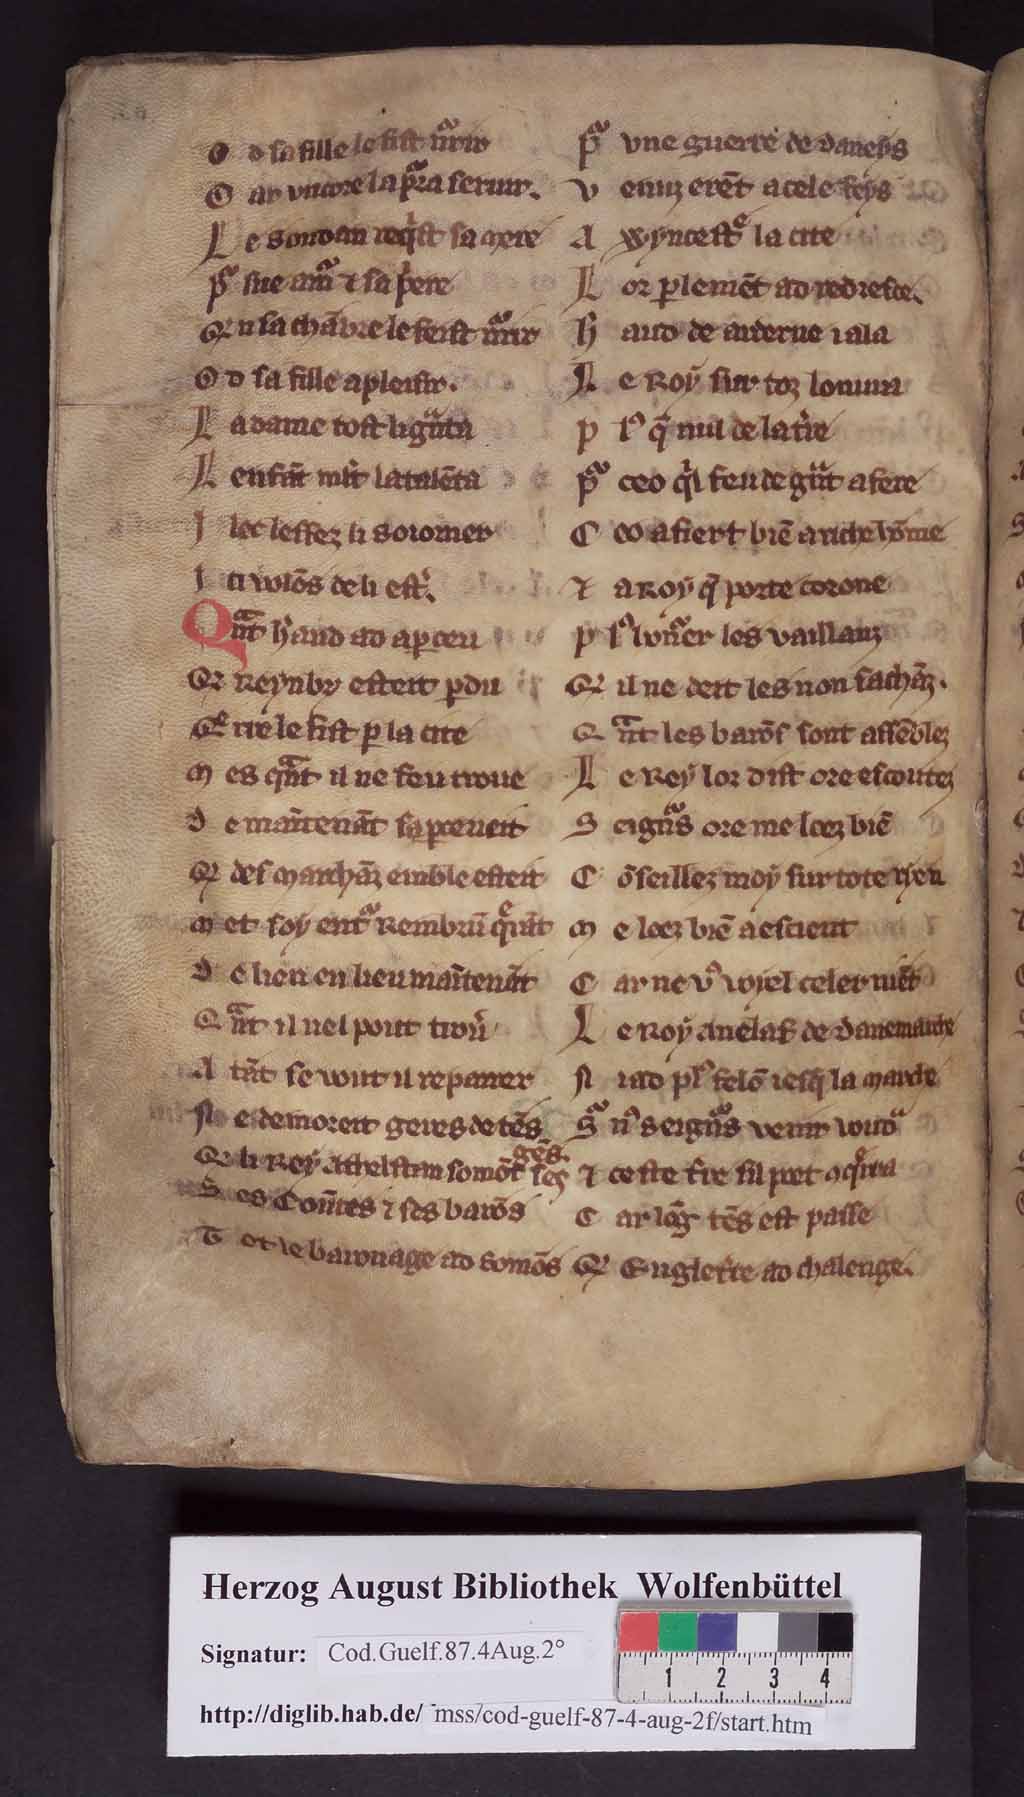 O d sa fille le fist nͣrir
O ar vncore la pͣra seruir.
L e soudan reqͥst sa mere
Pͬ sue amͬ ⁊ sa pͥere
Q̃ n sa chābre le feist nͣrir
O d sa fille a pleisir.
L a dame tost li gͣnta
L enfāt mlt̄ la talēta
I lec lessez li soiorner
I ci wlōs de li est̉.
Qͣnt h̉aud ad ap̱ceu
Q̃ Reynbꝛ esteit p̱du
Qͤ rre le fist p̱ la cite
M es qͣnt il ne feu troue
D e maītenāt sap̱ceueit
Q̃ des marchāz emble esteit
M et soy entͣ Rembrū qͤrāt
D e lieu en lieu maītenāt
Q ͣnt il nel pout troủ
A tāt se vout il repairer
N e demoreit geres de tēs
Q̃ li Roy Athelstan somōt ses gēs.
S es Countes ⁊ ses barōs
T ot le barnage ad somōs
Pͬ vne guerre de daneis
V enuz erēt a cele feys
A Wyncestͤ la cite
L or p̱lemēt ad redresce.
H̉ aud de arderne i ala
L e Roẏ sur toz lonura
P lꝰ q̄ nul de la tͥre
Pͬ ceo qͥl feu de gͣnt afere
C eo afiert biē a riche home
⁊ a Roy q̄ porte corone
P lꝰ lonͣer les vaillanz
Q̃ il ne deit les non sachāz.
Q ͣnt les barōs sont assēblez
L e Reẏ lor dist ore escoutez
S eignͬs ore me loez biē
C ōseillez moẏ sur tote rien
M e loez biē a escient
C ar ne vꝰ voiel celer niēt
L e Roẏ Anelaf de danemarche
N iad plꝰ felō iesq̄ la marche
Sͬ nꝰ seignͬs venir voudͣ
⁊ ceste t̉re sil poet ꝯqͥrra
C ar lōg tēs est passe
Q̃ Englet̉re ad chalenge.
Herzog August Bibliothek Wolfenbüttel
Signatur: Cod.Guelf.87.4Aug.2°
1 2 3 4
http://diglib.hab.de/ mss/cod-guelf-87-4-aug-2f/start.htm